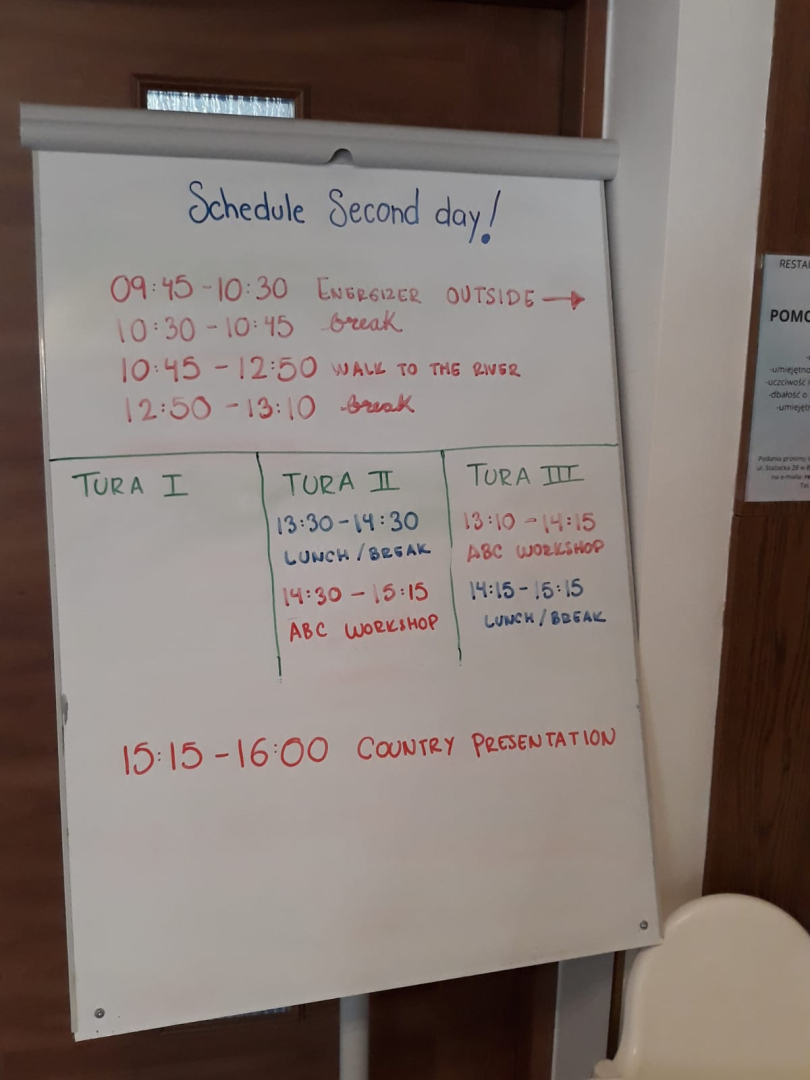 Schedule Second day!
09:45 - 10:30 ENERGIZER OUTSIDE →
10:30 - 10:45 break
10:45 - 12:50 WALK TO THE RIVER
12:50 - 13:10 break
TURA I
TURA II
13:30 - 14:30
LUNCH / BREAK
14:30 - 15:15
ABC WORKSHOP
TURA III
13:10 - 14:15
ABC WORKSHOP
14:15 - 15:15
LUNCH / BREAK
15:15 - 16:00 COUNTRY PRESENTATION
RESTA
POMO
-umiejętno
-uczciwość i
-dbałość o
-umiejęt